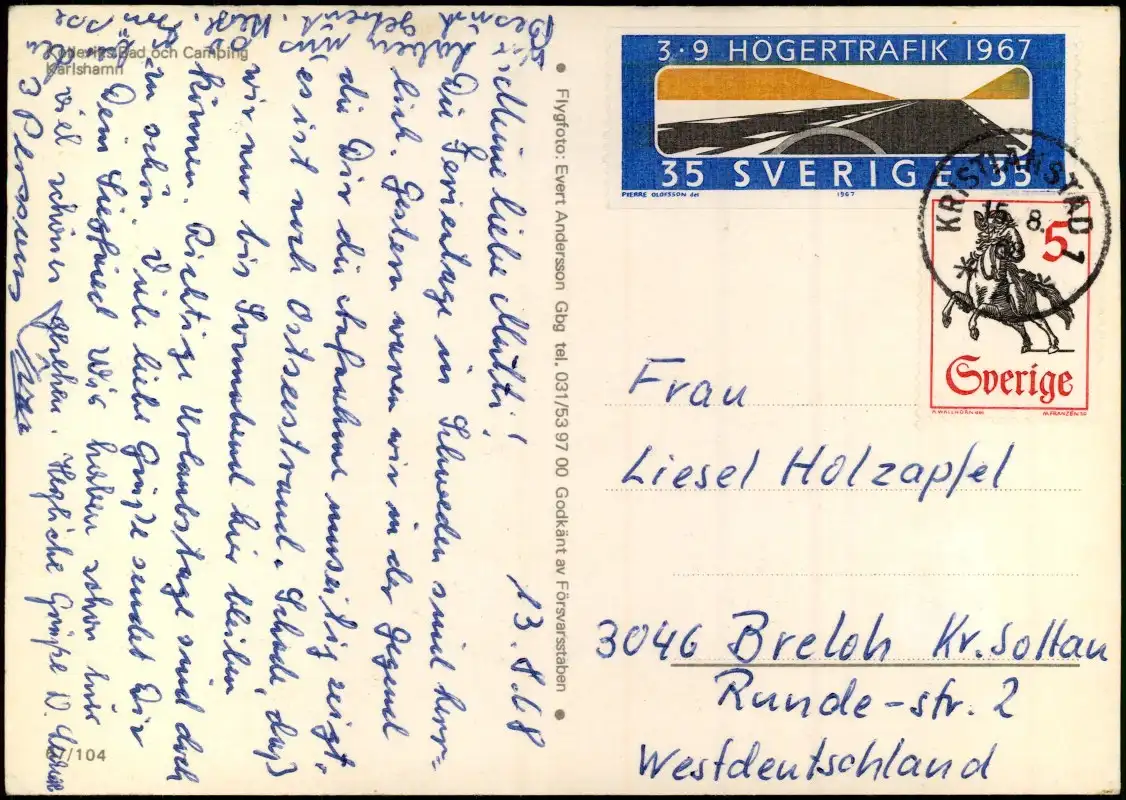 Kolleviks Bad och Camping
Karlshamn
67/104
• Flygfoto: Evert Andersson Gbg tel. 031/53 97 00 Godkänt av Försvarsstaben •
3·9 HÖGERTRAFIK 1967
35 SVERIGE 35
PIERRE OLOFSSON del 1967
KRISTIANSTAD 1
15 8.
5
Sverige
M. FRANZÉN SC
13.8.68
Meine liebe Mutti!
Die Ferientage in Schweden sind herr-
lich. Gestern waren wir in der Gegend
die Dir die Aufnahme umseitig zeigt.
es ist noch Ostseestrand. Schade, daß
wir nur bis Sonnabend hier bleiben
können. Richtige Urlaubstage sind doch
zu schön. Viele liebe Grüße sendet Dir
Dein Siegfried Wir haben schon
viel schönes gesehen. Herzliche Grüße
3 Personen
haben uns
Besuch
Frau
Liesel Holzapfel
3046 Breloh Kr. Soltau
Runde-str. 2
Westdeutschland